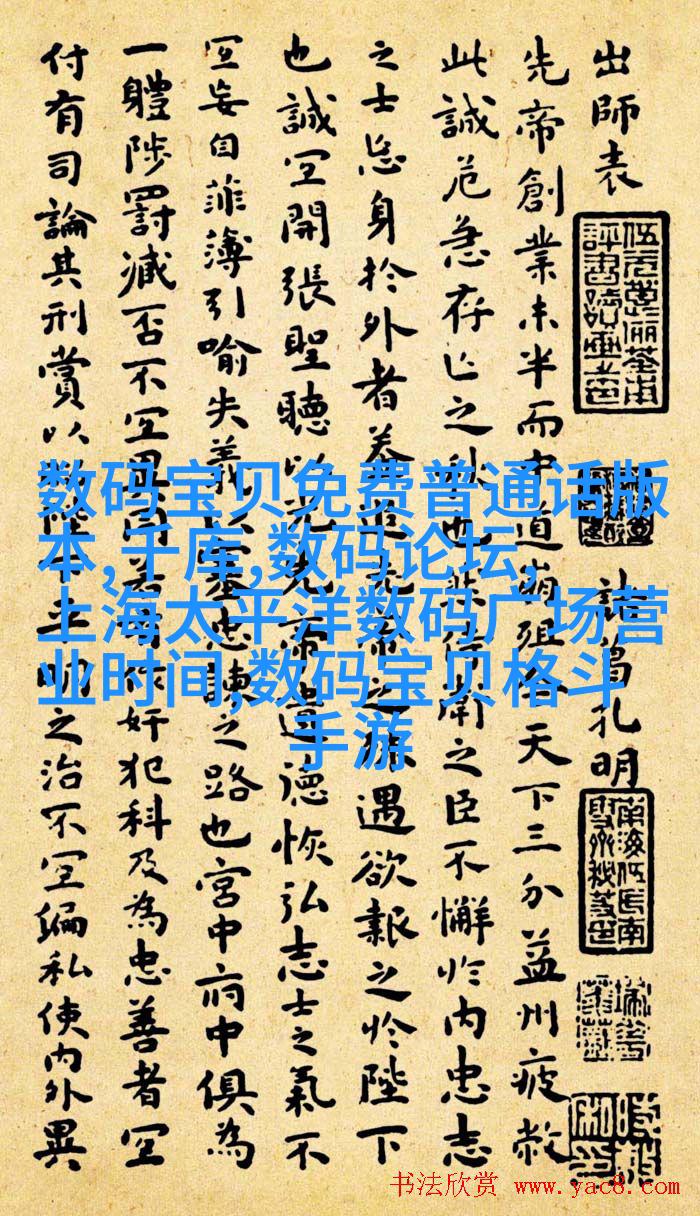 出師表
諸葛孔明
先帝創業未半而中道崩殂今天下三分益州疲敝
此誠危急存亡之秋也然侍衛之臣不懈於內忠志
之士忘身於外者蓋追先帝之殊遇欲報之於陛下
也誠宜開張聖聽以光先帝遺德恢弘志士之氣不
宜妄自菲薄引喻失義以塞忠諫之路也宮中府中俱為
一體陟罰臧否不宜異同若有作奸犯科及為忠善者宜
付有司論其刑賞以昭陛下平明之治不宜偏私使內外異
数码宝贝免费普通话版
本,千库,数码论坛,
上海太平洋数码广场营
业时间,数码宝贝格斗
手游
书法欣赏 www.yac8.com